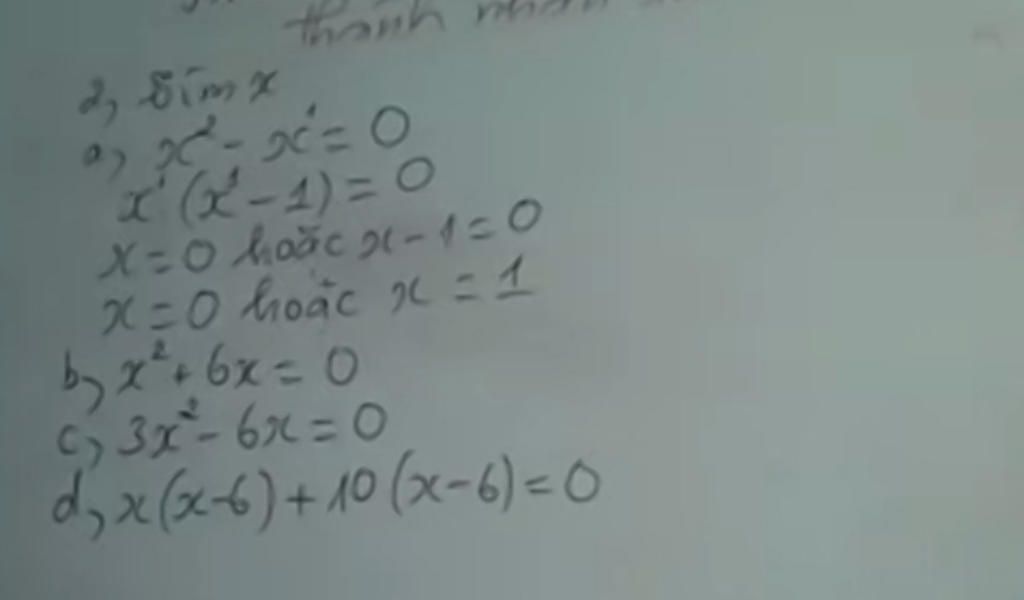 thành nhân
2, Tìm x
a, x² - x¹ = 0
x¹ (x¹ - 1) = 0
x = 0 hoặc x - 1 = 0
x = 0 hoặc x = 1
b, x² + 6x = 0
c, 3x² - 6x = 0
d, x(x-6) + 10(x-6) = 0